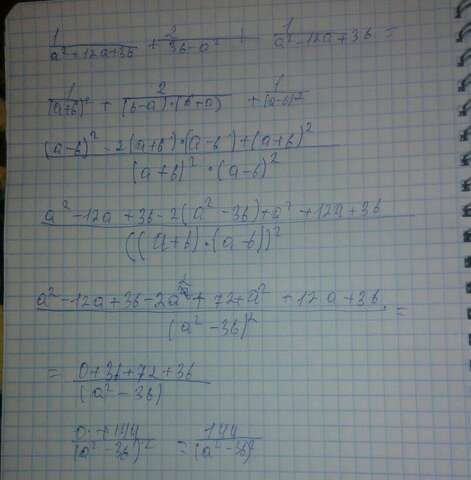 1/(a²+12a+36) + 2/(36-a²) + 1/(a²-12a+36) =
1/(a+6)² + 2/((6-a)·(6+a)) + 1/(a-6)²
((a-6)² - 2(a+6)·(a-6)+(a+6)²)/((a+6)²·(a-6)²)
(a²-12a+36-2(a²-36)+a²+12a+36)/(((a+6)·(a-6))²)
(a²-12a+36-2a²+72+a²+12a+36)/((a²-36)²) =
= (0+36+72+36)/((a²-36))
(0+144)/((a²-36)²) = 144/((a²-36)²)